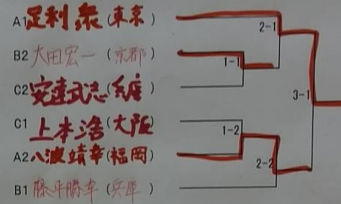 A1 足利 衆 (東京)
B2 大田宏一 (京都)
C2 安達武志
C1 上本浩 (大阪)
A2 八波靖幸 (福岡)
B1 藤平勝幸 (兵庫)
2-1
1-1
3-1
1-2
2-2